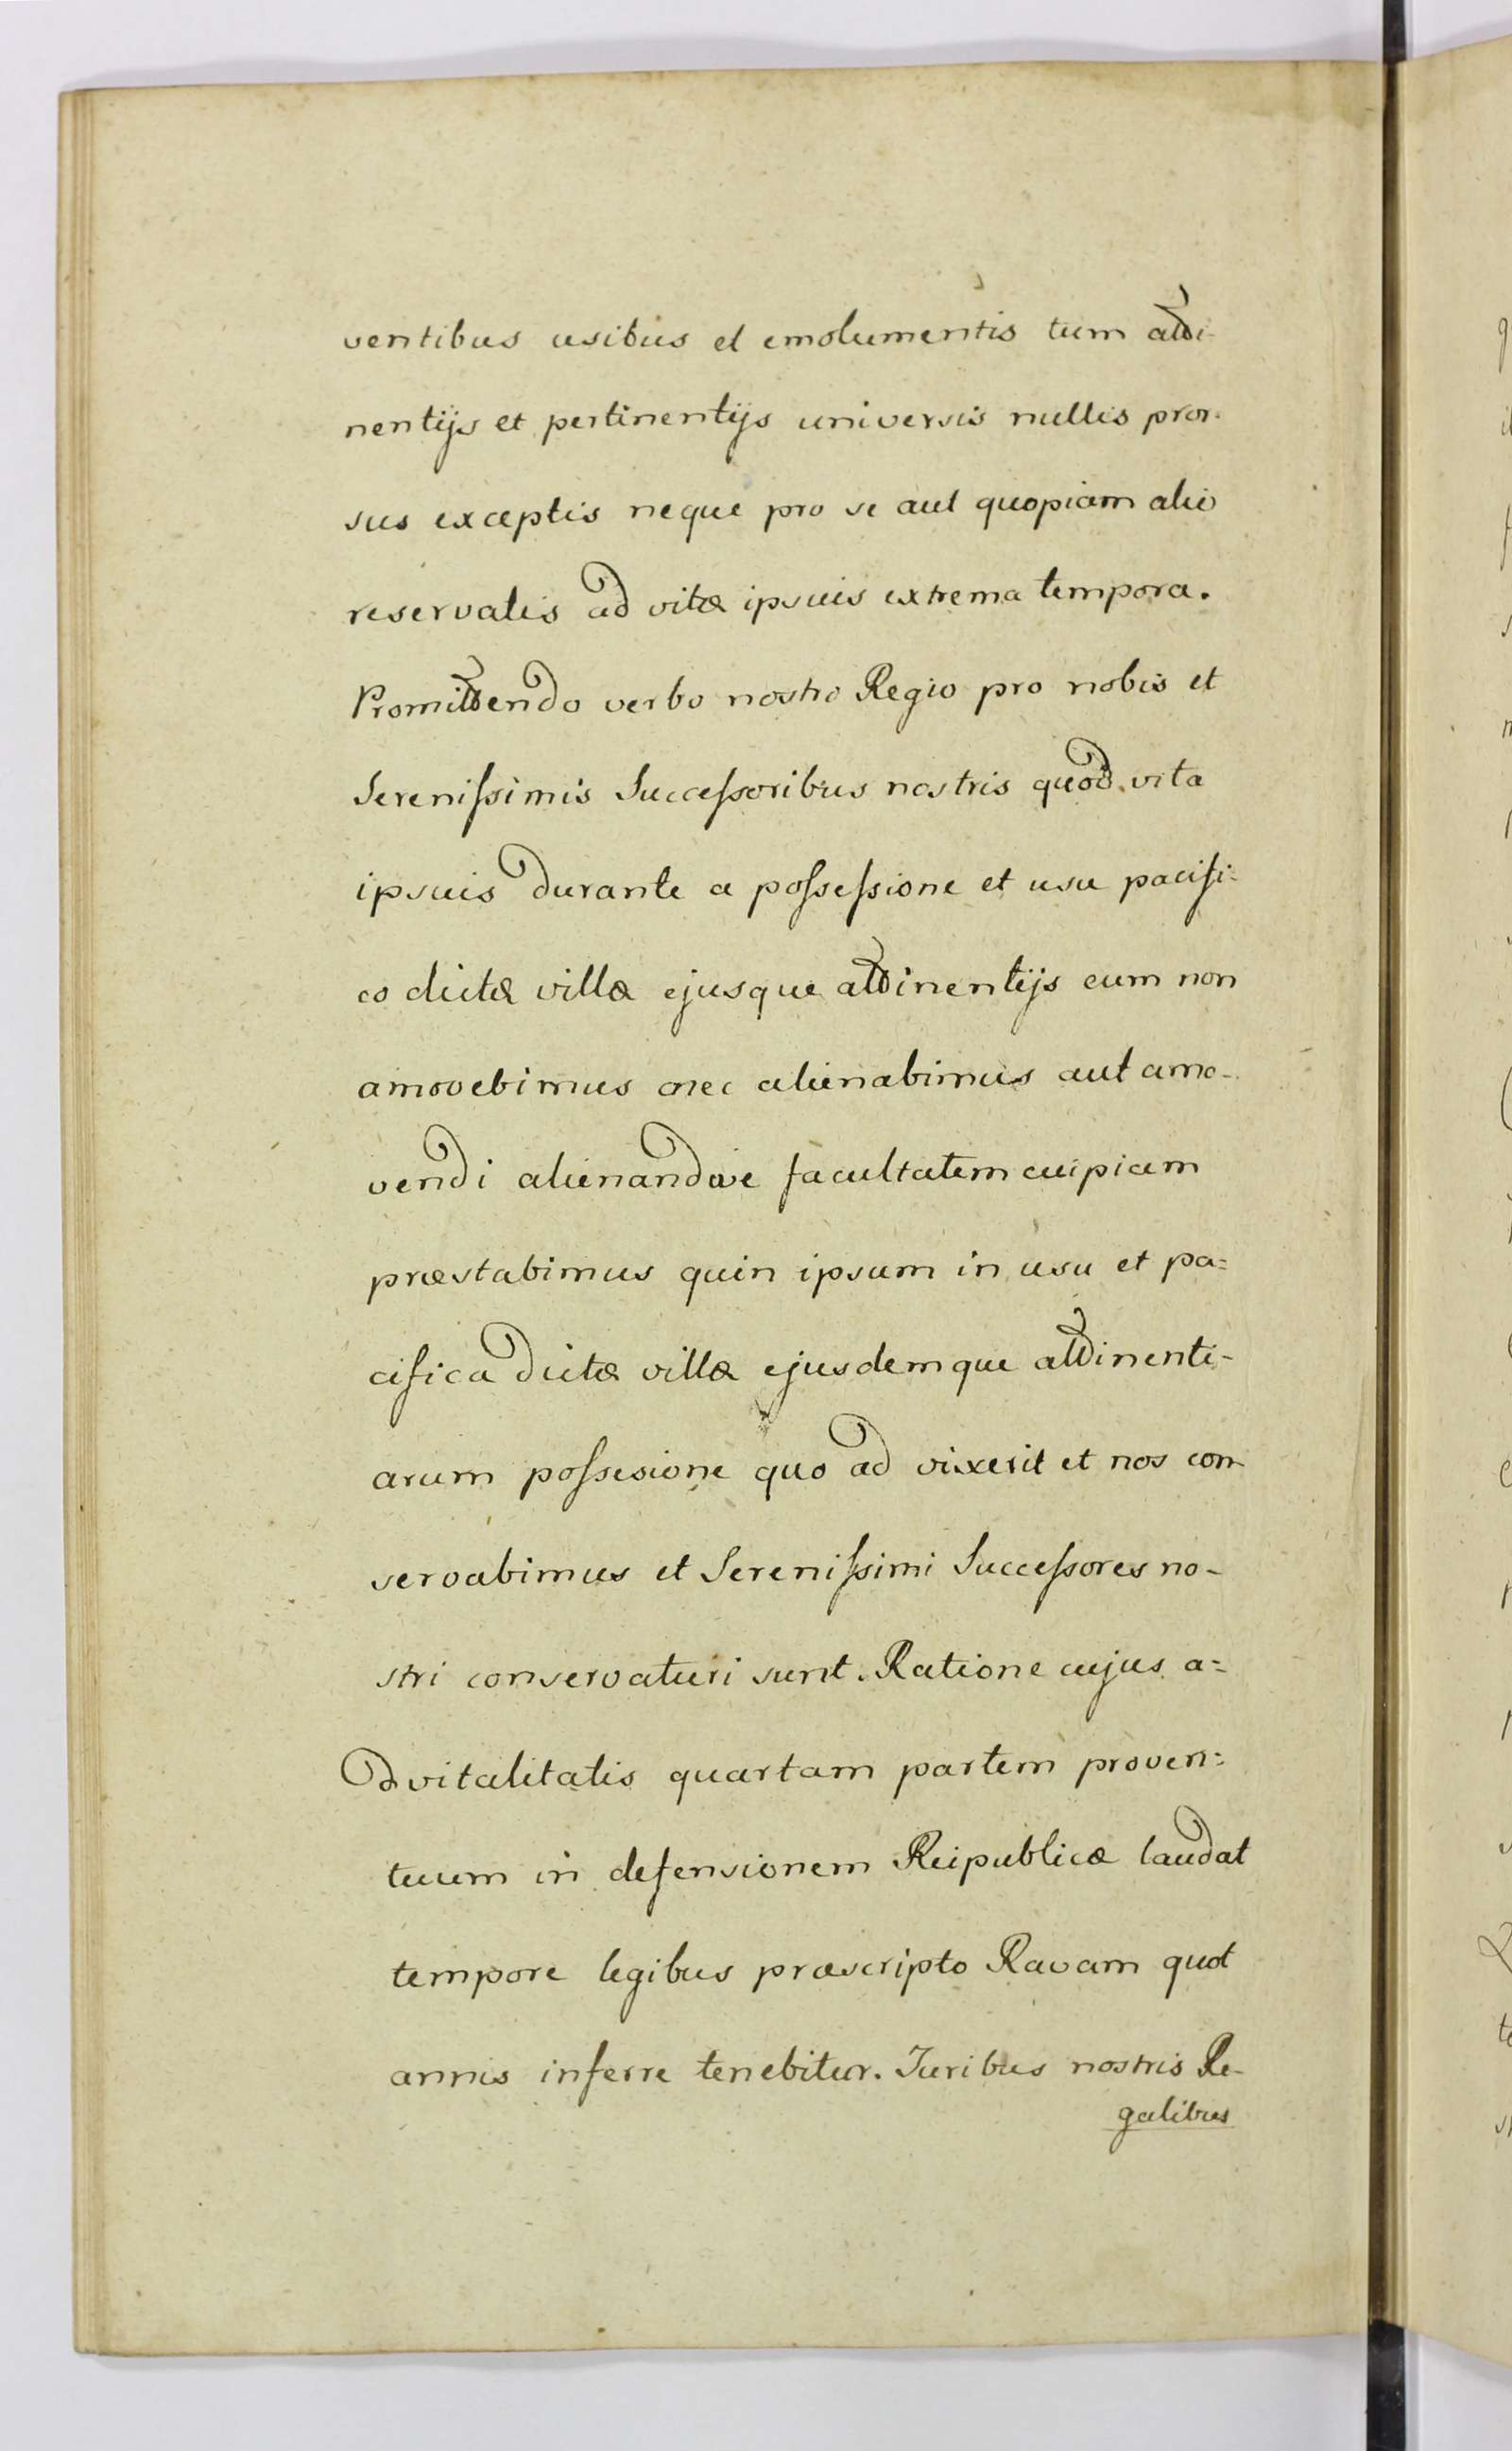 ventibus usibus et emolumentis tum atti-
nentijs et pertinentijs universis nullis pror-
sus exceptis neque pro se aut quopiam alio
reservatis ad vitæ ipsius extrema tempora.
Promittendo verbo nostro Regio pro nobis et
Serenissimis Successoribus nostris quod vita
ipsius durante a possessione et usu pacifi-
co dictæ villæ ejusque attinentijs eum non
amovebimus nec alienabimus aut amo-
vendi alienandive facultatem cuipiam
præstabimus quin ipsum in usu et pa=
cifica dictæ villæ ejusdemque attinenti-
arum possesione quo ad vixerit et nos con
servabimus et Serenissimi Successores no-
stri conservaturi sunt. Ratione cujus a=
dvitalitatis quartam partem proven=
tuum in defensionem Reipublicæ laudat
tempore legibus præscripto Ravam quot
annis inferre tenebitur. Juribus nostris Re-
galibus